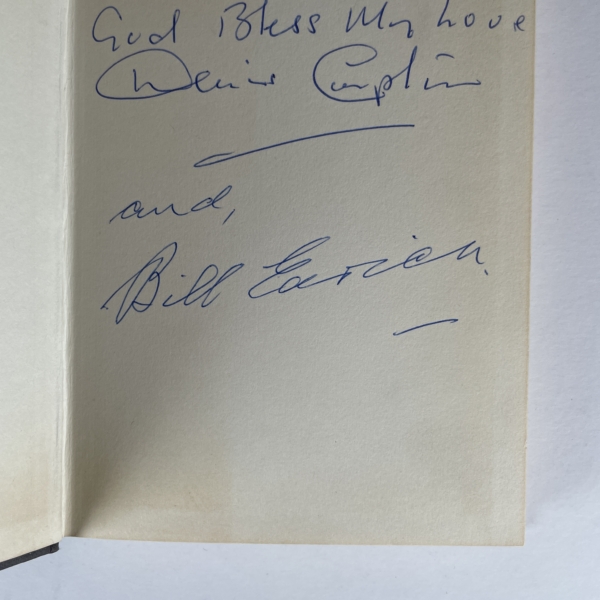 God Bless My Love
Denis Compton
and,
Bill Edrich.